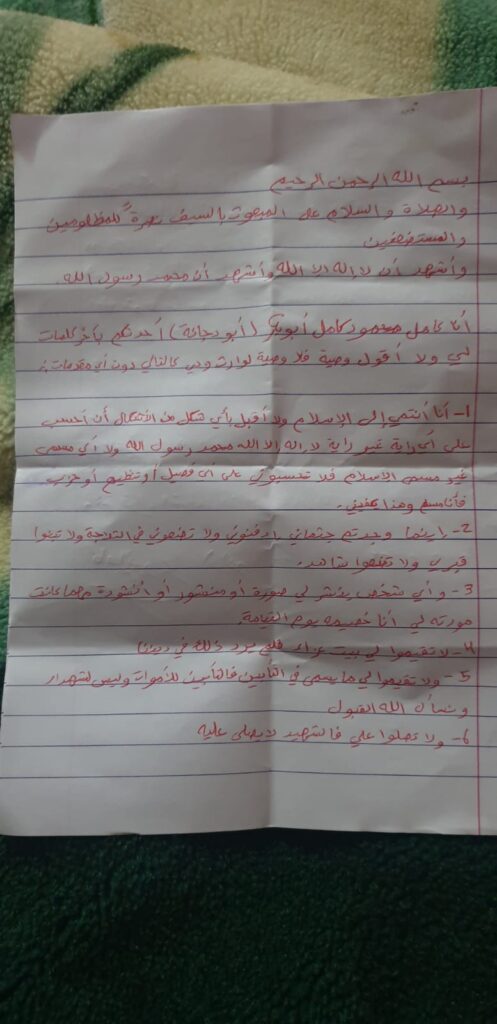 بسم الله الرحمن الرحيم
والصلاة والسلام على المبعوث بالسيف نصرةً للمظلومين
والمستضعفين
وأشهد أن لا إله إلا الله وأشهد أن محمد رسول الله.
أنا كامل محمود كامل أبوبكر (أبو دجانة) أحدثكم بآخر كلمات
لي ولا أقول وصية فلا وصية لوارث وهي كالتالي دون أي مقدمات:
1- أنا أنتمي إلى الإسلام ولا أقبل بأي شكل من الأشكال أن أحسب
على أي راية غير راية لا إله إلا الله محمد رسول الله ولا أي مسمى
غير مسمى الإسلام فلا تحسبوني على أي فصيل أو تنظيم أو حزب
فأنا مسلم وهذا يكفيني.
2- أينما وجدتم جثماني ادفنوني ولا تضعوني في الثلاجة ولا تبنوا
قبري ولا تضعوا شاهد.
3- وأي شخص ينشر لي صورة أو منشور أو أنشودة مهما كانت
مورته لي أنا خصيمه يوم القيامة.
4- لا تقيموا لي بيت عزاء فلم يرد ذلك في ديننا
5- ولا تقيموا لي ما يسمى في التأبين فالتأبين للأموات وليس للشهداء
ونسأل الله القبول
6- ولا تصلوا علي فالشهيد لا يصلى عليه